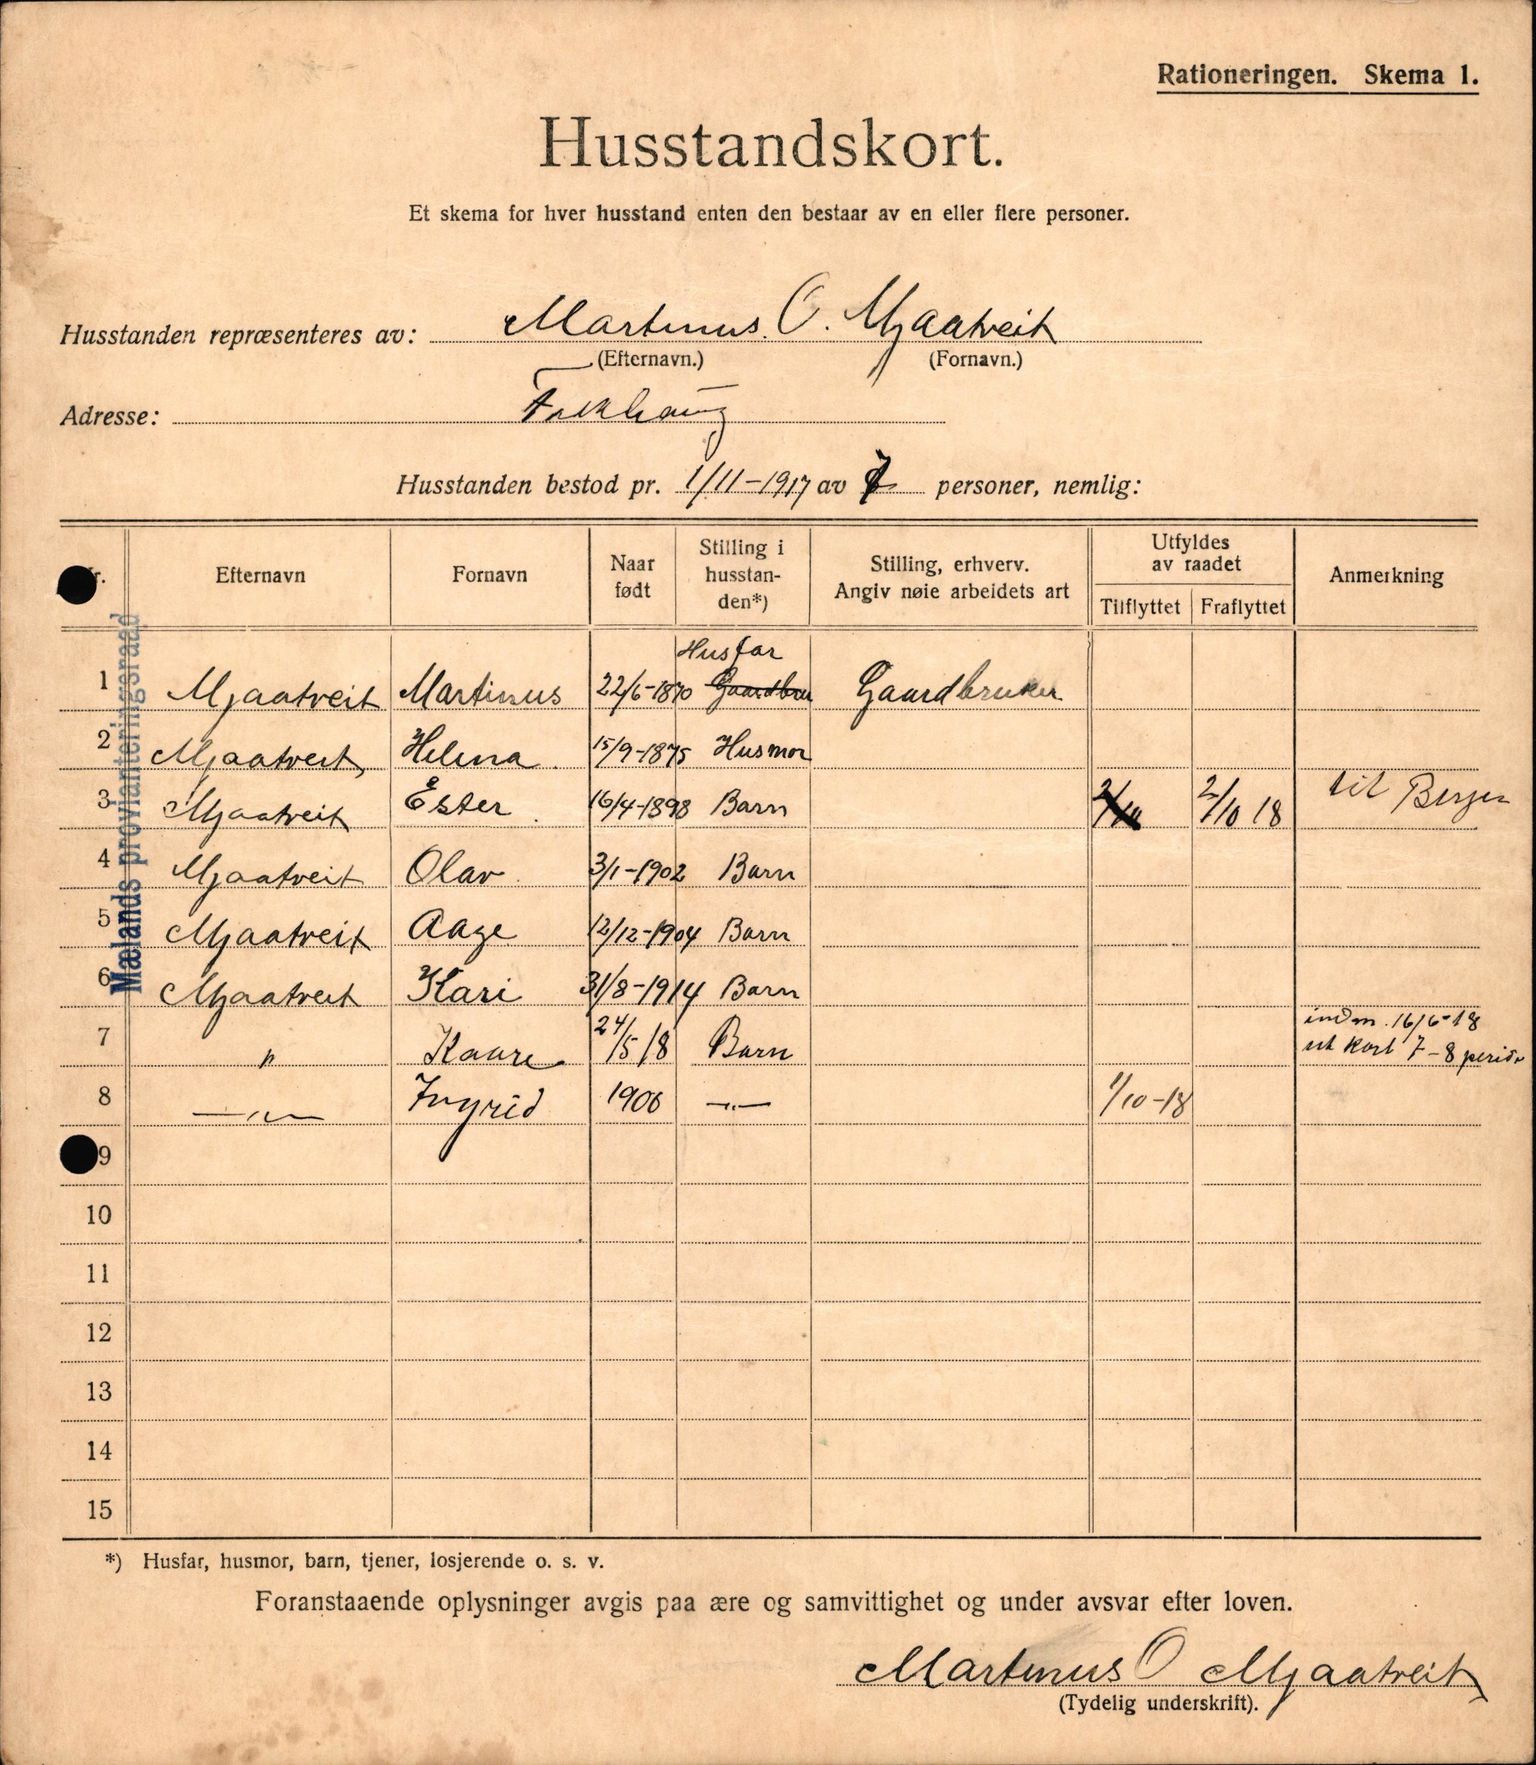 Rationeringen. Skema 1.
Husstandskort.
Et skema for hver husstand enten den bestaar av en eller flere personer.
Husstanden repræsenteres av: Martinus. O. Mjaatveit
(Efternavn.) (Fornavn.)
Adresse:
Husstanden bestod pr. 1/11-1917 av 7 personer, nemlig:
Nr. Efternavn Fornavn Naar født Stilling i husstanden*) Stilling, erhverv. Angiv nøie arbeidets art Utfyldes av raadet Tilflyttet Fraflyttet Anmerkning
Mælands provianteringsraad
Husfar
1 Mjaatveit Martinus 22/6-1870 Gaardbru Gaardbruker
2 Mjaatveit Helena 15/9-1875 Husmor
3 Mjaatveit Ester 16/4-1898 Barn 2/10 2/10 18 til Bergen
4 Mjaatveit Olav 3/1-1902 Barn
5 Mjaatveit Aage 12/12-1904 Barn
6 Mjaatveit Kari 31/8-1914 Barn
7 " Kaare 24/5 18 Barn indm. 16/6-18
ut kort 7-8 periode
8 —"— Ingrid 1906 —"— 1/10-18
9
10
11
12
13
14
15
*) Husfar, husmor, barn, tjener, losjerende o. s. v.
Foranstaaende oplysninger avgis paa ære og samvittighet og under avsvar efter loven.
Martinus O Mjaatveit
(Tydelig underskrift).